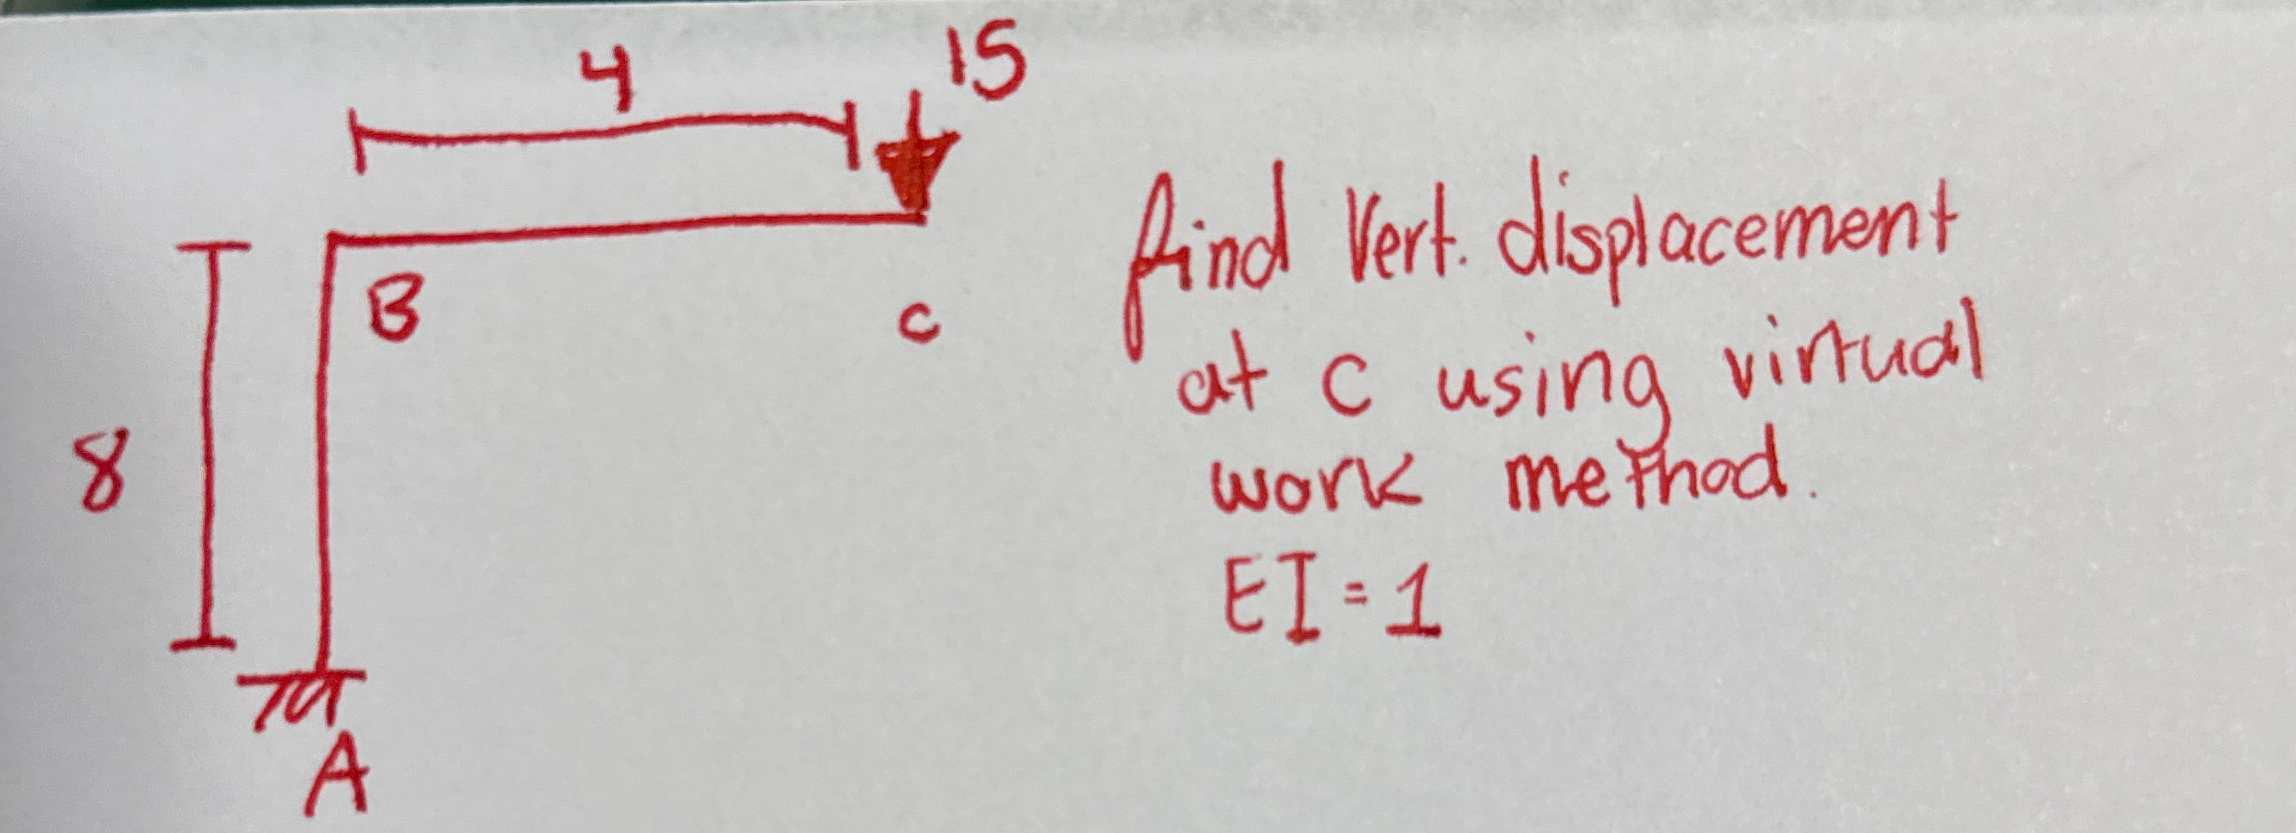 4
15
B
C
8
A
find Vert. displacement
at C using virtual
work method.
EI = 1